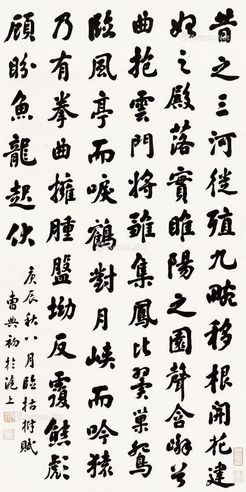 昔之三河徙殖九畹移根開花建
始之殿落實睢陽之園聲含嶰谷
曲抱雲門將雛集鳳比翼巢鴛
臨風亭而唳鶴對月峽而吟猿
乃有拳曲擁腫盤坳反覆熊彪
顧盼魚龍起伏
庚辰秋八月臨枯樹賦
曹典初於滬上